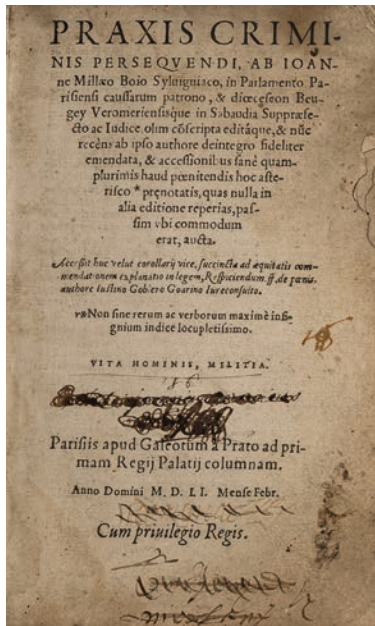 PRAXIS CRIMI-
NIS PERSEQVENDI, AB IOAN-
ne Millæo Boio Syluigniaco, in Parlamento Pa-
risiensi caussarum patrono, & diœceseon Beu-
gey Veromeriensisque in Sabaudia Suppræfe-
cto ac Iudice, olim cõscripta editáque, & nũc
recèns ab ipso authore deintegro fideliter
emendata, & accessionibus sanè quam-
plurimis haud pœnitendis hoc aste-
risco * pręnotatis, quas nulla in
alia editione reperias, pas-
sim vbi commodum
erat, aucta.
Accessit huc velut corollarij vice, succincta ad æquitatis com-
mendationem explanatio in legem, Respiciendum ff. de pœnis.
authore Iustino Gobłero Goarino Iureconsulto.
Non sine rerum ac verborum maximè insi-
gnium indice locupletissimo.
VITA HOMINIS, MILITIA.
Parisiis apud Galeotum à Prato ad pri-
mam Regij Palatij columnam.
Anno Domini M. D. LI. Mense Febr.
Cum priuilegio Regis.